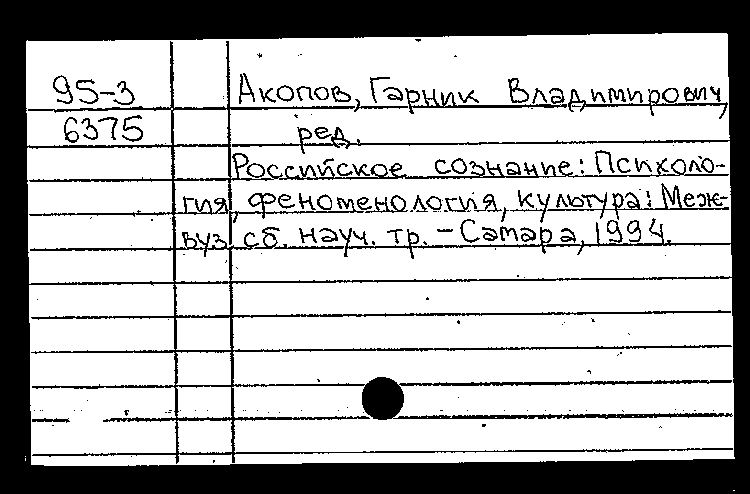 95-3 Акопов, Гарник Владимирович,
6375 ред.
Российское сознание: Психоло-
гия, феноменология, культура: Меж-
вуз. сб. науч. тр. – Самара, 1994.